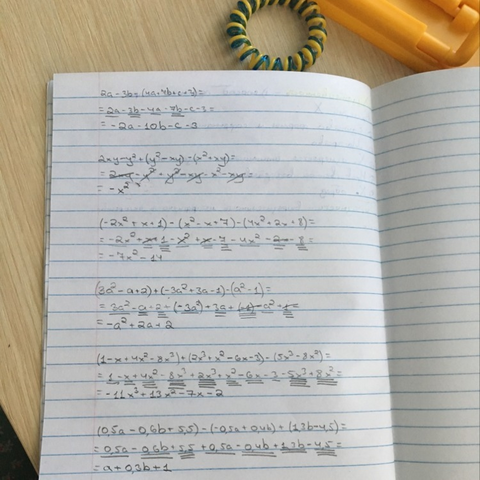 2a-3b-(4a+7b+c+3)=
=2a-3b-4a-7b-c-3=
=-2a-10b-c-3
2xy-y²+(y²-xy)-(x²+xy)=
=2xy-y²+y²-xy-x²-xy=
=-x²
(-2x²+x+1)-(x²-x+7)-(4x²+2x+8)=
=-2x²+x+1-x²+x-7-4x²-2x-8=
=-7x²-14
(3a²-a+2)+(-3a²+3a-1)-(a²-1)=
=3a²-a+2+(-3a²)+3a+(-1)-a²+1=
=-a²+2a+2
(1-x+4x²-8x³)+(2x³+x²-6x-3)-(5x³-8x²)=
=1-x+4x²-8x³+2x³+x²-6x-3-5x³+8x²=
=-11x³+13x²-7x-2
(0,5a-0,6b+5,5)-(-0,5a+0,4b)+(1,3b-4,5)=
=0,5a-0,6b+5,5+0,5a-0,4b+1,3b-4,5=
=a+0,3b+1